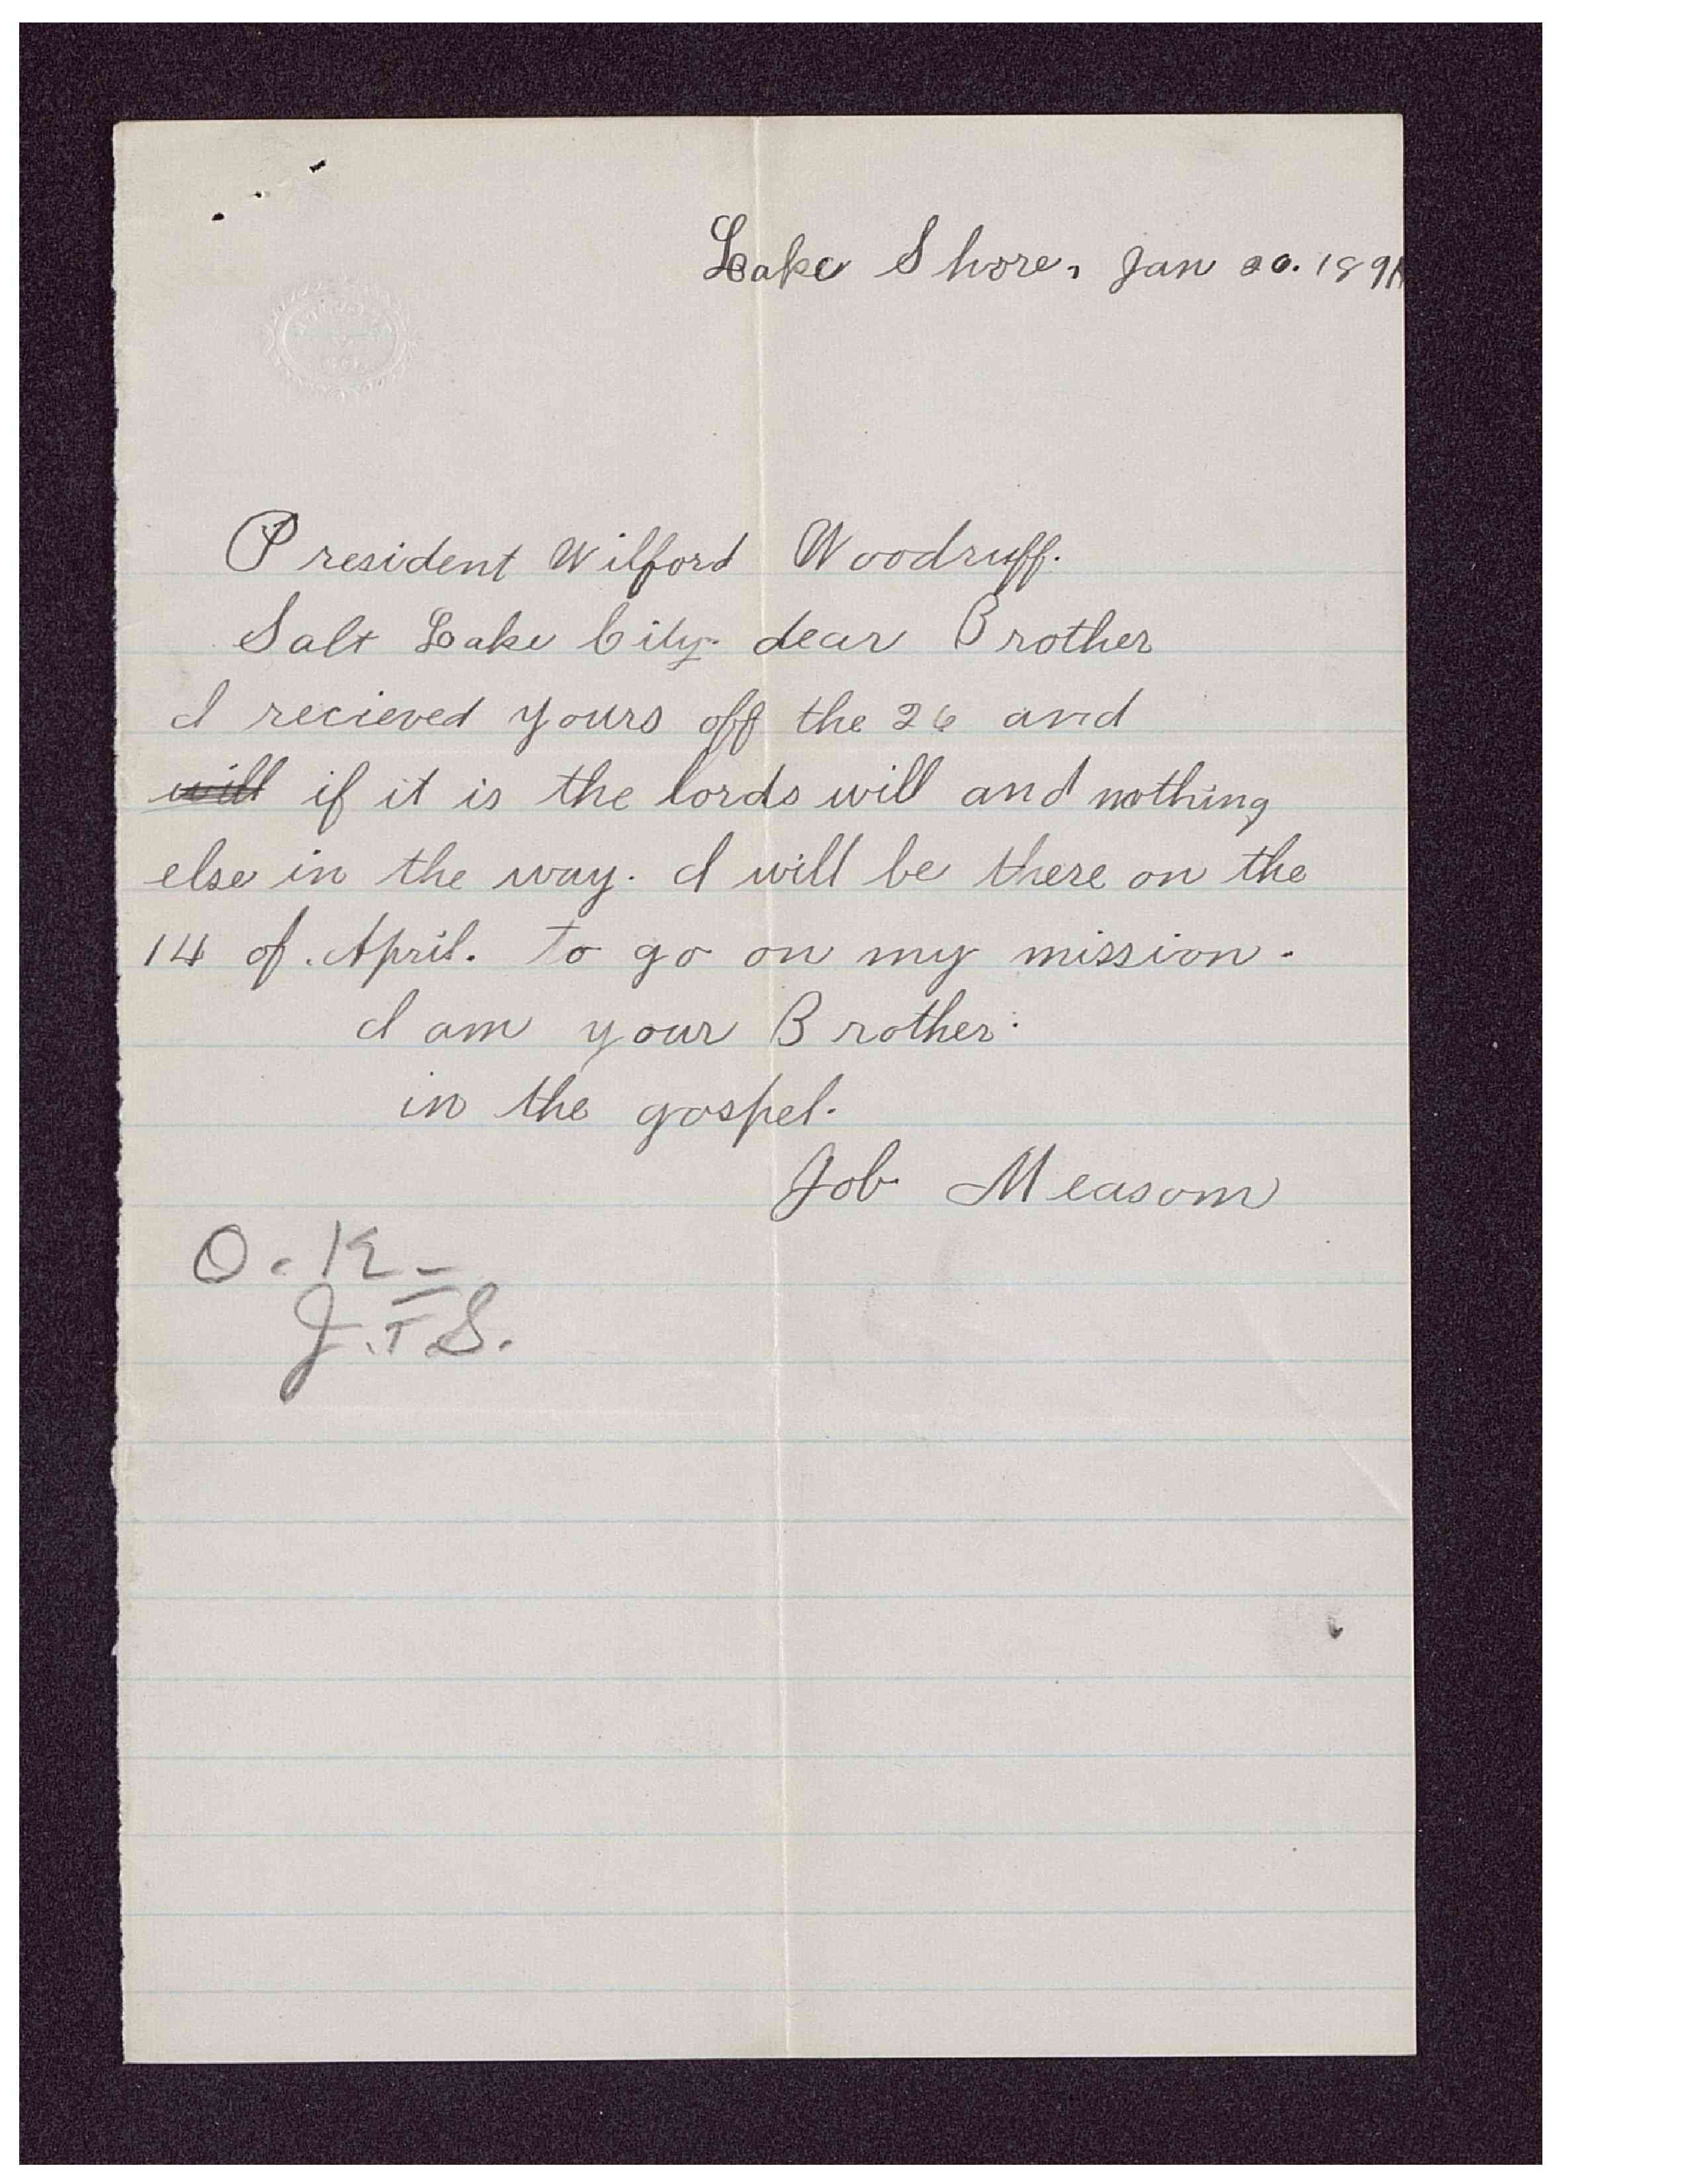 Lake Shore, Jan 30. 189
President Wilford Woodruff.
Salt Lake City. dear Brother
I recieved yours off the 26 and
will if it is the lords will and nothing
else in the way. I will be there on the
14 of April. to go on my mission.
I am your Brother.
in the gospel.
Job Measom
O.K.
J.F.S.